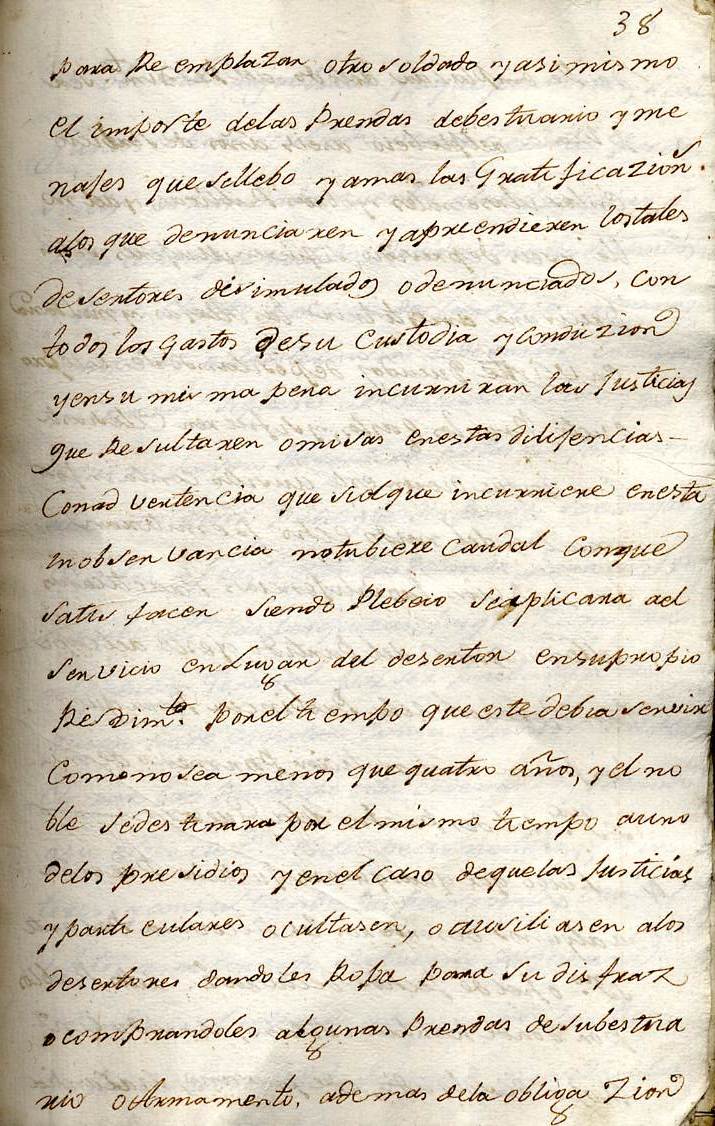 38
para Re emplazar otro soldado y asi mismo
el importe delas Prendas debestuario y me
najes que sellebo y amas las Gratificazion.s
alos que denunciaren y aprendieren los tales
desertores disimulados o denunciados, con
todos los gastos de su custodia y conduzion
y en su misma pena incurriran las Justicias
que Resultaren omisas en estas dilijencias-
Con ad vertencia que siel que incurriere en esta
inobservancia no tubiere caudal con que
satis facer siendo Plebeio se aplicara ael
servicio en Lugar del desertor en su propio
Rejim.to por el ti empo que este debia servir
como no sea menos que quatro años, y el no
ble se des tinara por el mismo tiempo a uno
delos presidios y en el caso de que las Justicias
y parti culares ocultasen, o ausiliasen alos
desertores dandoles Ropa para su dis fraz
o comprandoles algunas Prendas de su bestua
rio o Armamento, ademas dela obliga zion